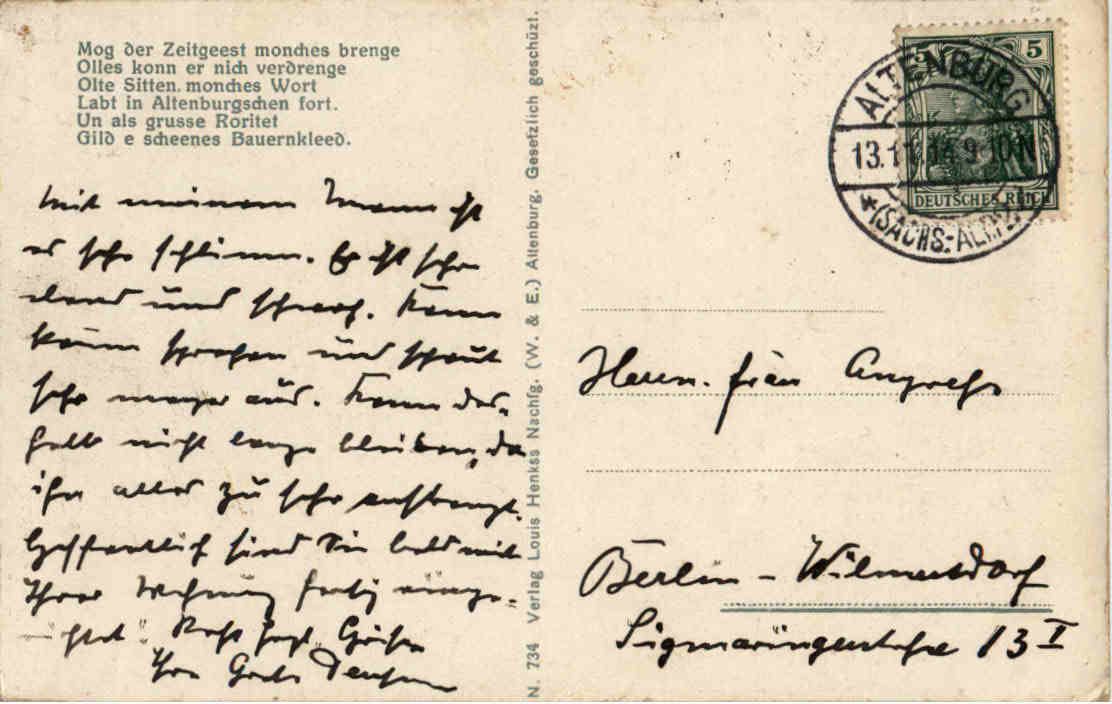 Mog der Zeitgeest monches brenge
Olles konn er nich verdrenge
Olte Sitten, monches Wort
Labt in Altenburgschen fort.
Un als grusse Roritet
Gild e scheenes Bauernkleed.
mit meinem Mann ist
es sehr schlimm. Er ist sehr
elend und schwach. Kann
kaum sprechen und schaut
sehr mager aus. Kann des-
halb nicht lange bleiben, da
ihn alles zu sehr anstrengt.
Hoffentlich sind Sie bald mit
Ihrer Wohnung fertig einge-
richtet. Recht herzl. Grüße
Ihre
N. 734 Verlag Louis Henkss Nachfg. (W. & E.) Altenburg. Gesetzlich geschüzt.
5 5
DEUTSCHES REICH
ALTENBURG
13.11.14.9-10N
*(SACHS.-ALTB.)
Frau
Berlin - Wilmersdorf
Sigmaringerstraße 13 I